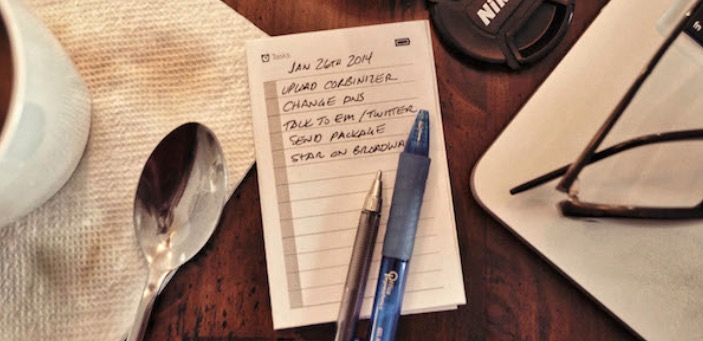 Tasks
JAN 26TH 2014
UPLOAD CORBINIZER
CHANGE DNS
TALK TO EM / TWITTER
SEND PACKAGE
STAR ON BROADWA
NIK